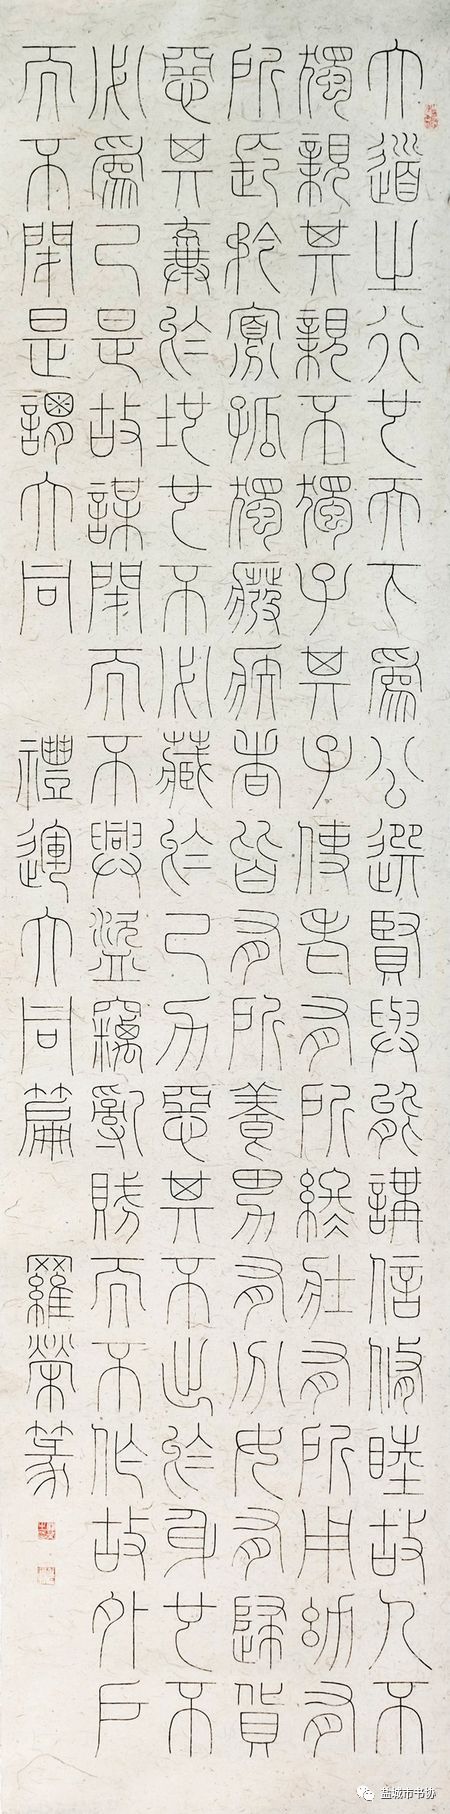 大道之行也天下爲公選賢與能講信修睦故人不
獨親其親不獨子其子使老有所終壯有所用幼有
所長矜寡孤獨廢疾者皆有所養男有分女有歸貨
惡其棄於地也不必藏於己力惡其不出於身也不
必爲己是故謀閉而不興盜竊亂賊而不作故外戶
而不閉是謂大同 禮運大同篇 羅榮篆
盐城市书协